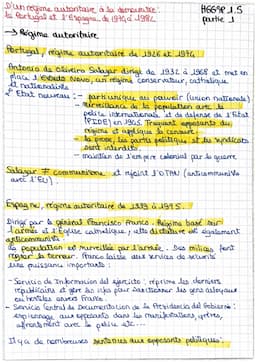 D'un régime autoritaire à la démocratie:
le Portugal et l'Espagne de 1974 à 1982
HGGSP 1.5
partie 1
→ Régime autoritaire
Portugal, régime autoritaire de 1926 et 1974
Antonio de Oliveira Salazar dirige de 1932 à 1968 et met en
place l'Estado Novo, un régime conservateur, catholique
et nationaliste
L'Etat nouveau : - parti unique au pouvoir (union nationale)
- surveillance de la population avec la
police internationale et de défense de l'Etat
(PIDE) en 1945. Traquent opposants du
régime et applique la censure.
- la presse, les partis politiques et les syndicats
sont interdits.
- maintien de l'empire colonial par la guerre
Salazar ≠ communisme et rejoint l'OTAN (anticommuniste
avec l'EU).
Espagne, régime autoritaire de 1939 à 1975.
Dirigé par le général Francisco Franco. Régime basé sur
l'armée et l'Eglise catholique; cette dictature est également
anticommuniste.
La population est surveillée par l'armée. Ses milices font
régner la terreur. Franco laisse aux services de sécurité
une puissance importante :
- Servicio de Información del ejercito : réprime les derniers
républicains et gère les infos pour sanctionner les gens
ou hostiles envers Franco.
- Servicio Central de Documentacion de la Presidencia del Gobierno :
espionnage aux opposants dans les manifestations, grèves,
affrontement avec la police etc...
Il y a de nombreuses sentences aux opposants politiques.